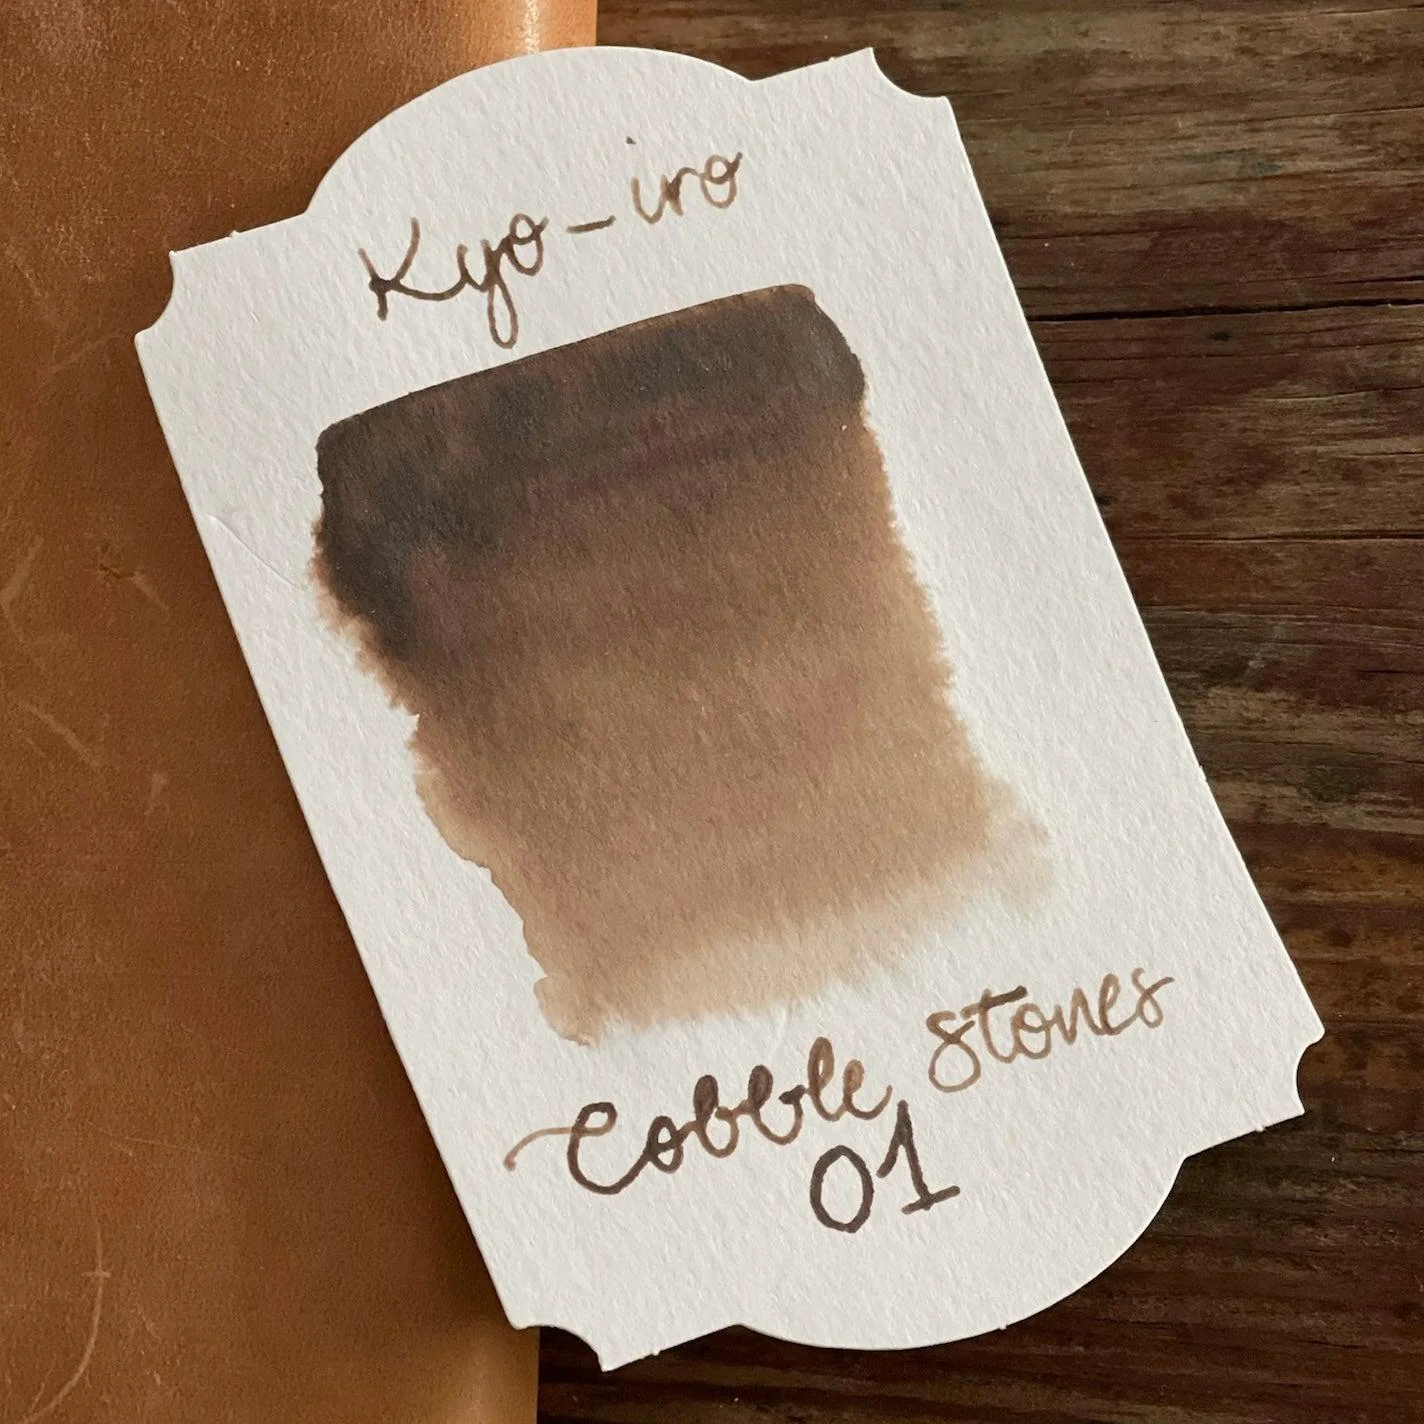 Kyo-iro
Cobble Stones
01